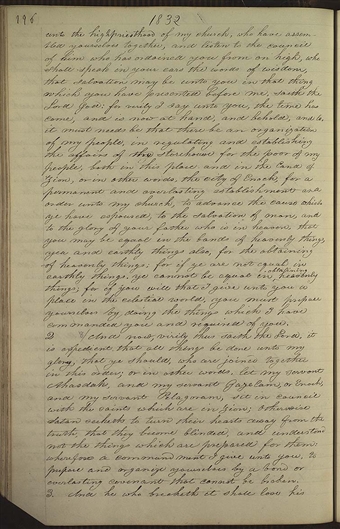 196
1832
unto the highpriesthood of my church, who have assem-
bled yourselves together, and listen to the council
of him who has ordained you from on high, who
shall speak in your ears the words of wisdom,
that salvation may be unto you in that thing
which you have presented before me, saith the
Lord God; for verily I say unto you, the time has
come, and is now at hand, and behold, and lo,
it must needs be that there be an organization
of my people, in regulating and establishing
the affairs of the Storehouse for the poor of my
people, both in this place and in the land of
Zion, or in other words, the city of Enoch, for a
permanent and everlasting establishment and
order unto my church, to advance the cause which
ye have espoused, to the salvation of man, and
to the glory of your father who is in heaven, that
you may be equal in the bands of heavenly things
yea and earthly things also, for the obtaining
of heavenly things; for if ye are not equal in
earthly things, ye cannot be equal in obtaining heavenly
things; for if you will that I give unto you a
place in the celestial world, you must prepare
yourselves by doing the things which I have
commanded you and required of you.
2 And now, verily thus saith the Lord, it
is expedient that all things be done unto my
glory, that ye should, who are joined together
in this order; or in other words, let my servant
Ahashdah, and my servant Gazelam, or Enoch,
and my servant Pelagoram, sit in council
with the saints which are in Zion; otherwise
Satan seeketh to turn their hearts away from the
truth, that they become blinded, and understand
not the things which are prepared for them:
wherefore a commandment I give unto you, to
prepare and organize yourselves by a bond or
everlasting covenant that cannot be broken.
3 And he who breaketh it shall lose his